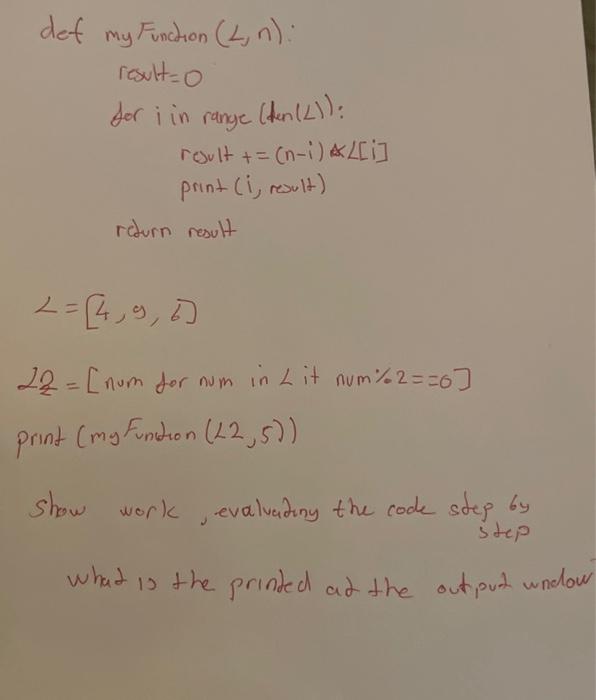 def myFunction(L,n):
result=0
for i in range(len(L)):
result += (n-i)*L[i]
print(i, result)
return result
L=[4,9,6]
L2=[num for num in L if num%2==0]
print(myFunction(L2,5))
show work, evaluating the code step by
step
what is the printed at the output wndow